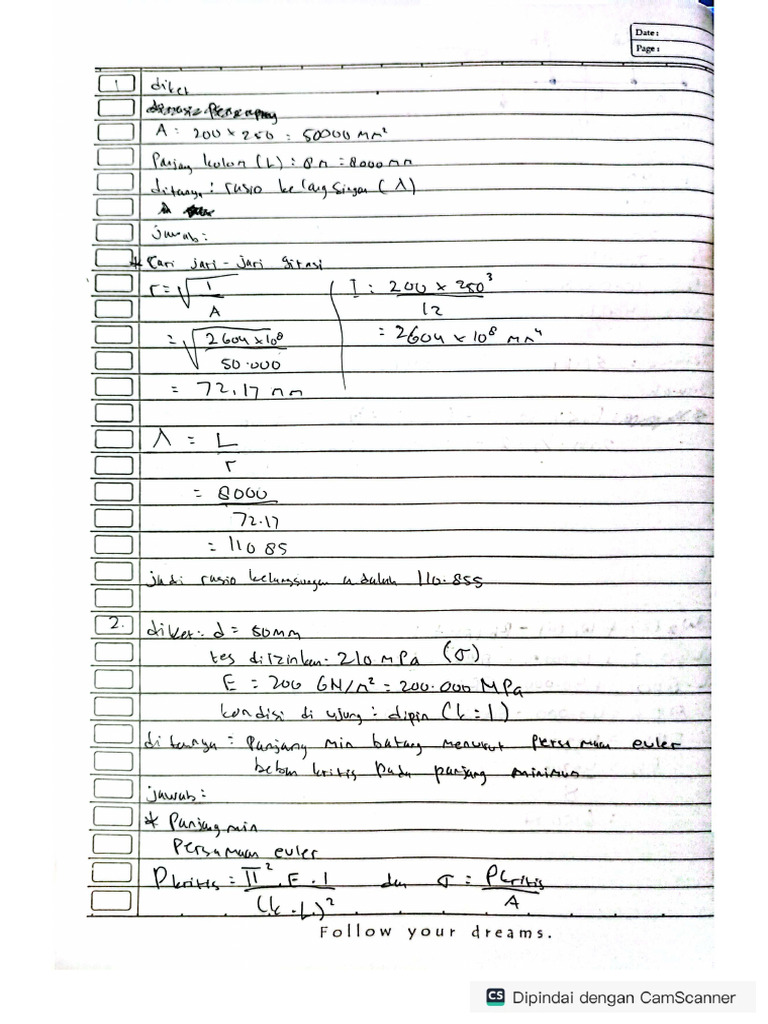 Date:
Page:
1 diket
A : 200 × 250 = 50000 mm²
Panjang kolom (L) : 8 m = 8000 mm
ditanya : rasio kelangsingan (λ)
jawab :
* Cari jari-jari girasi
r = √ I / A
I : 200 × 250³ / 12
= √ 2604 × 10⁸ / 50.000
= 2604 × 10⁸ mm⁴
= 72,17 mm
λ = L / r
= 8000 / 72.17
= 110 85
jadi rasio kelangsingan adalah 110.855
2. diket : d = 50mm
tes diizinkan = 210 MPa (σ)
E = 200 GN/m² = 200.000 MPa
kondisi di ujung : dipin (k = 1)
ditanya = Panjang min batang menurut Persamaan euler
beban kritis Pada panjang minimum
jawab :
* Panjang min
Persamaan euler
Pkritis = π² . E . I / (k . L)² dan σ = Pkritis / A
Follow your dreams.
CS Dipindai dengan CamScanner